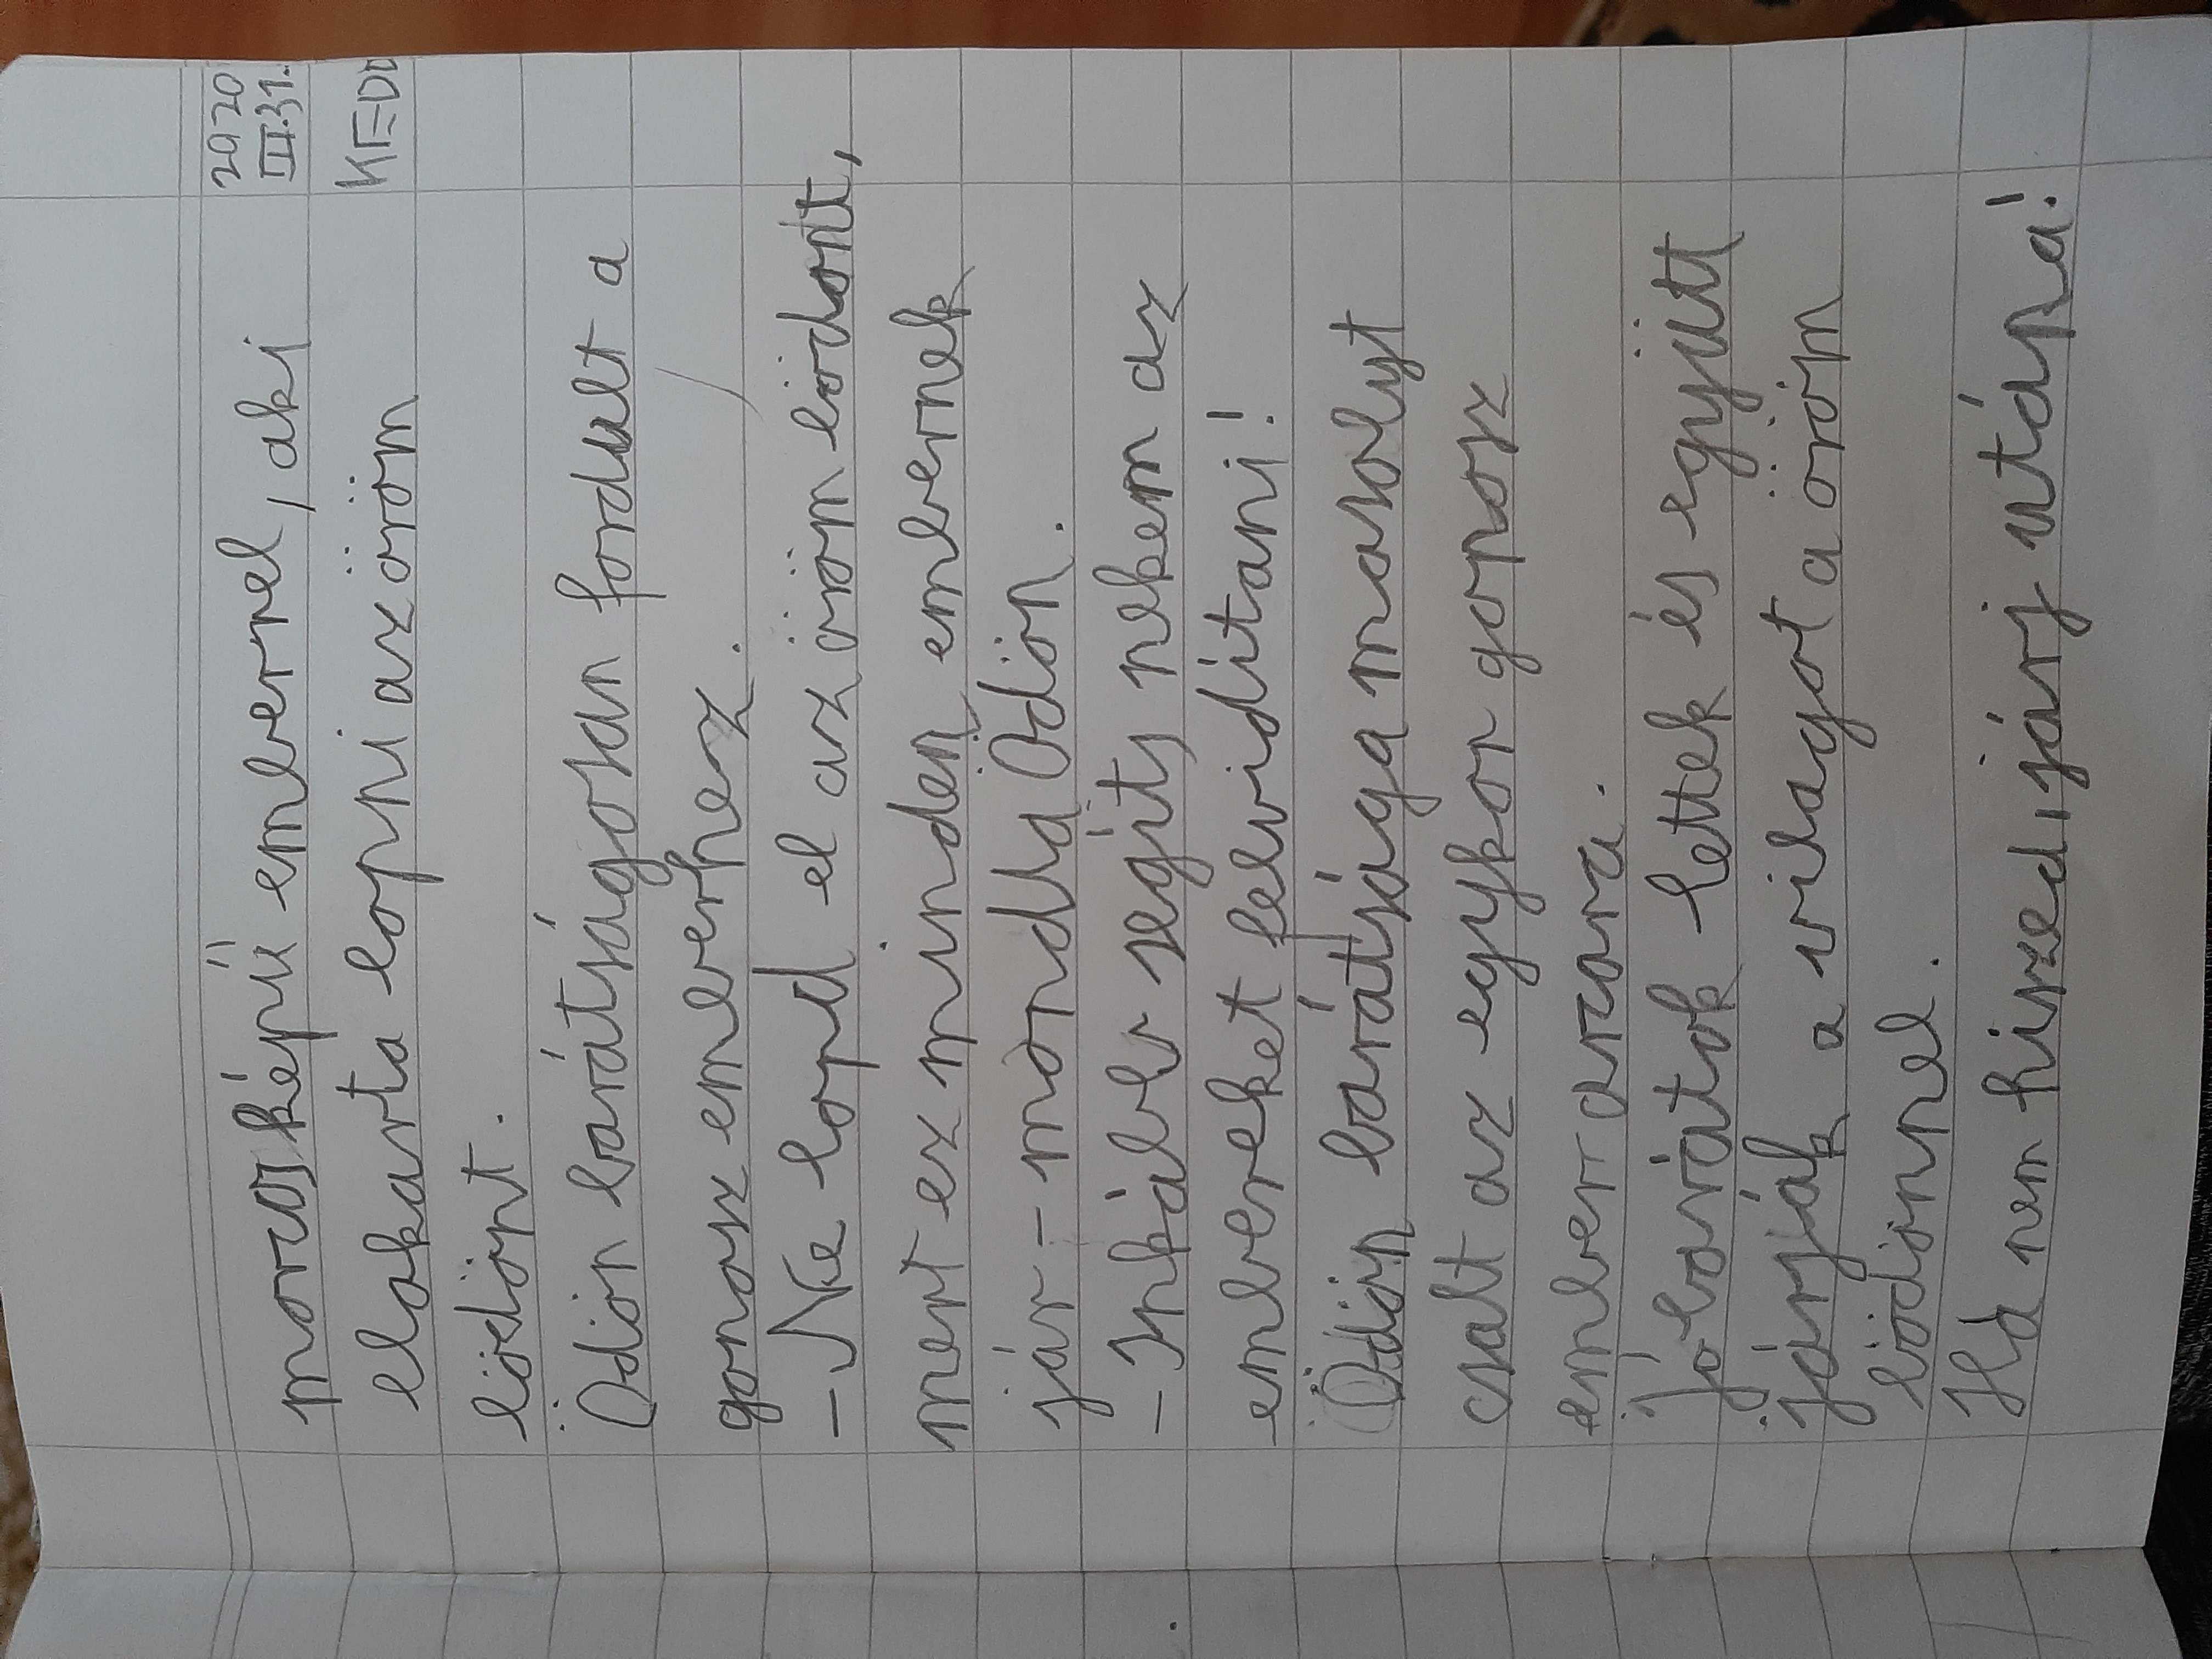 2020
III.31.
KEDD
morcos képű emberrel, aki
elakarta lopni az öröm
bödönt.
Ödön barátságosan fordult a
gonosz emberhez.
- Ne lopd el az öröm bödönt,
mert ez minden embernek
jár - mondta Ödön.
- Inkább segíts nekem az
embereket felvidítani!
Ödön barátsága mosolyt
csalt az egykor gonosz
ember arcára.
Jó barátok lettek és együtt
járják a világot a öröm
bödönnel.
Ha nem hiszed, járj utána!